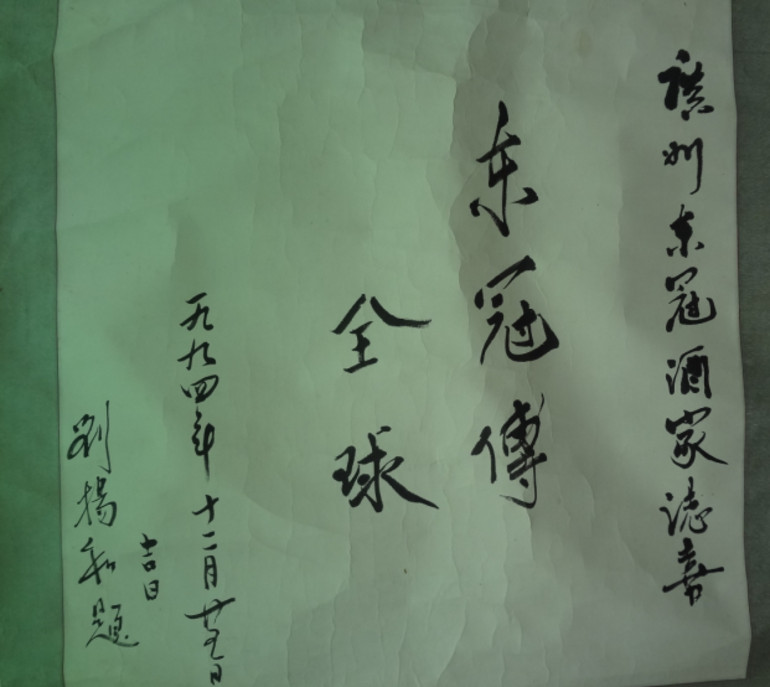 廣州东冠酒家誌喜
东冠傳
全球
一九九四年十二月廿五日
吉日
劉楊和題